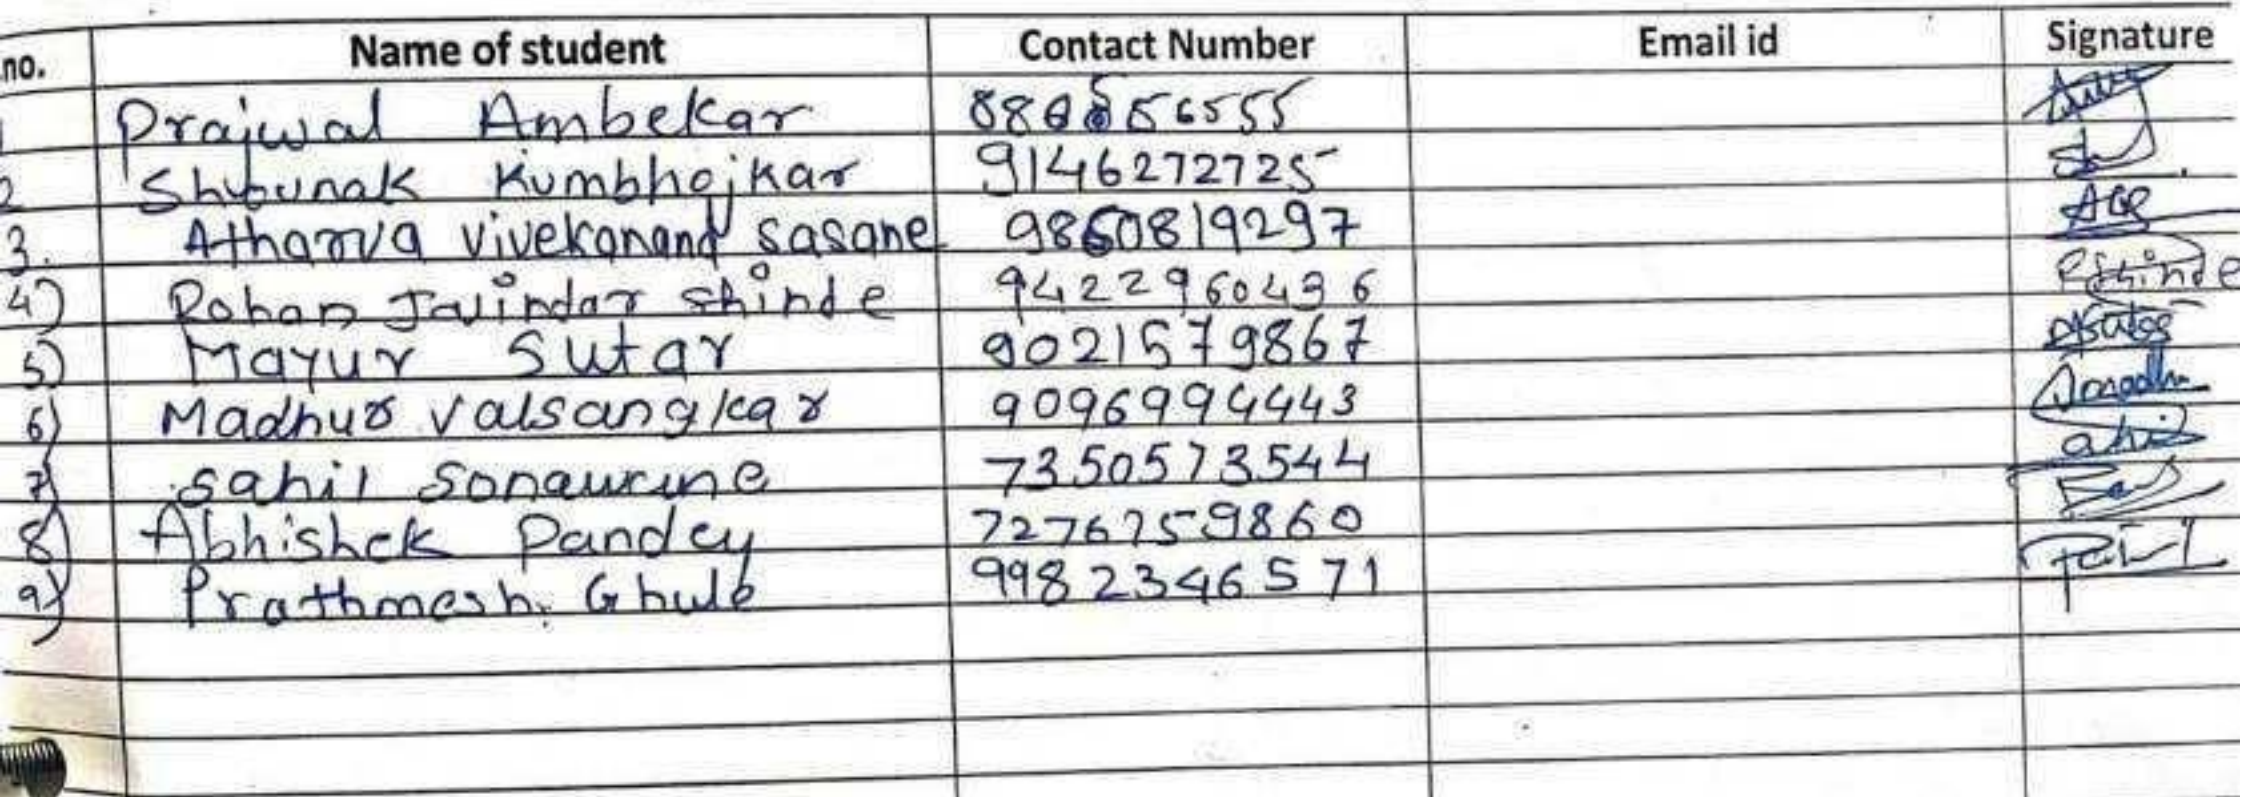 no. Name of student Contact Number Email id Signature
Prajwal Ambekar
2 Shounak Kumbhojkar 9146272725
3. Atharva Vivekanand Sasane 9860819297
4) Rohan Javindar Shinde 9422960436 RShinde
5) Mayur Sutar 9021579867
6) Madhur Valsangkar 9096994443
7) Sahil Sonawane 7350573544
8) Abhishek Pandey 7276759860
9) Prathmesh Ghule 9982346571